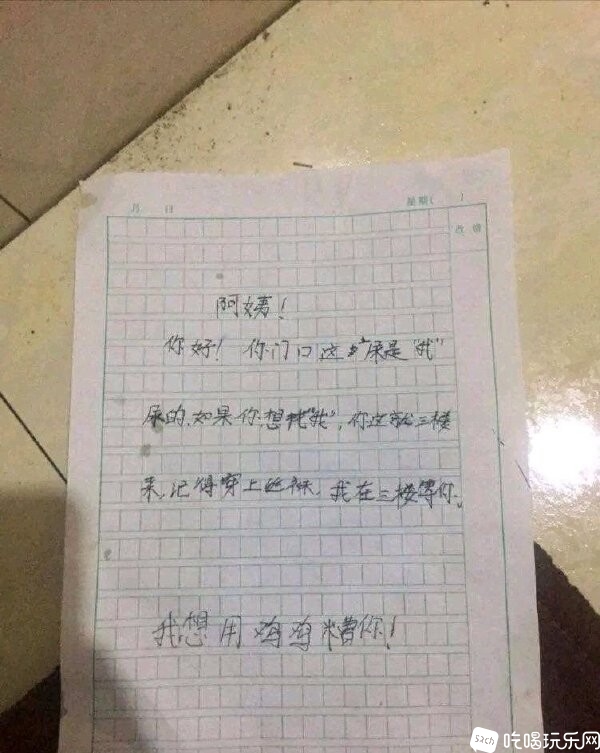 月 日 星期( )
改 错
阿姨!
你好!你门口这尿是"我"
尿的.如果你想找"我",你就三楼
来,记得穿上丝袜,我在三楼等你。
我想用鸡鸡你!
52ch 吃喝玩乐网